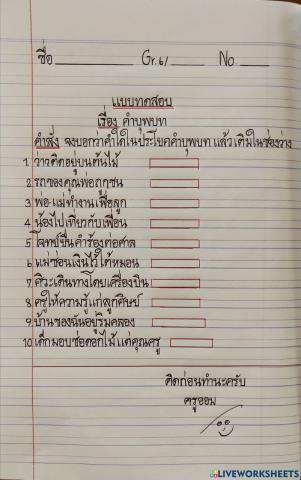 ชื่อ Gr.6/ No.
แบบทดสอบ
เรื่อง คำบุพบท
คำสั่ง จงบอกว่าคำใดในประโยคคำบุพบท แล้วเติมในช่องว่าง
1. ว่าวติดอยู่บนต้นไม้
2. รถของคุณพ่อถูกชน
3. พ่อ แม่ทำงานเพื่อลูก
4. น้องไปเที่ยวกับเพื่อน
5. โจทก์ยื่นคำร้องต่อศาล
6. แม่ซ่อนเงินไว้ใต้หมอน
7. ศิวะเดินทางโดยเครื่องบิน
8. ครูให้ความรู้แก่ลูกศิษย์
9. บ้านของฉันอยู่ริมคลอง
10. เด็กมอบช่อดอกไม้แด่คุณครู
คิดก่อนทำนะครับ
ครูออม
LIVEWORKSHEETS